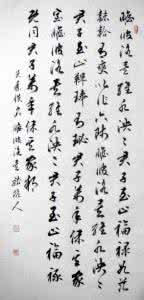 瞻彼洛矣維水泱泱君子至止福祿如茨
韎韐有奭以作六師瞻彼洛矣維水泱泱
君子至止鞞琫有珌君子萬年保其家
室瞻彼洛矣維水泱泱君子至止福祿
既同君子萬年保其家邦
瞻彼洛矣